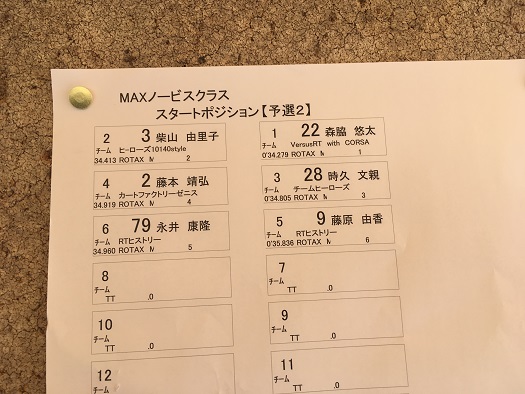 MAXノービスクラス
スタートポジション【予選2】
2 3 柴山 由里子
チーム ヒーローズ10140style
34.413 ROTAX M 2
1 22 森脇 悠太
チーム VersusRT with CORSA
0'34.279 ROTAX M 1
4 2 藤本 靖弘
チーム カートファクトリーゼニス
34.919 ROTAX M 4
3 28 時久 文親
チーム チームヒーローズ
0'34.805 ROTAX M 3
6 79 永井 康隆
チーム RTヒストリー
34.960 ROTAX M 5
5 9 藤原 由香
チーム RTヒストリー
0'35.836 ROTAX M 6
8
チーム
TT .0
7
チーム
TT .0
10
チーム
TT .0
9
チーム
TT .0
12
チーム
11
チーム